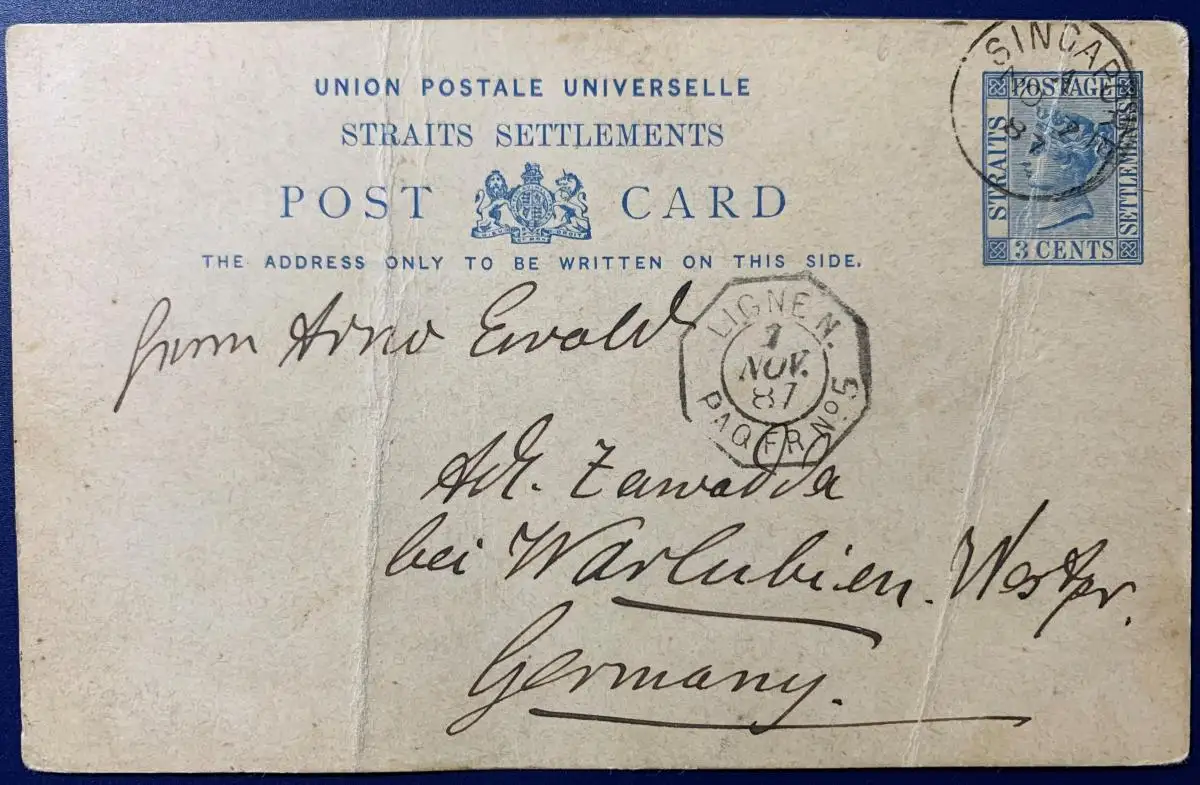 UNION POSTALE UNIVERSELLE
STRAITS SETTLEMENTS
POST CARD
THE ADDRESS ONLY TO BE WRITTEN ON THIS SIDE.
SINGAPORE
NO 1
87
POSTAGE
STRAITS
SETTLEMENTS
3 CENTS
LIGNE N.
1
NOV.
87
PAQ. FR. No. 5
Herrn Arno Ewald
Adl. Zawadda
bei Warlubien. Westpr.
Germany.